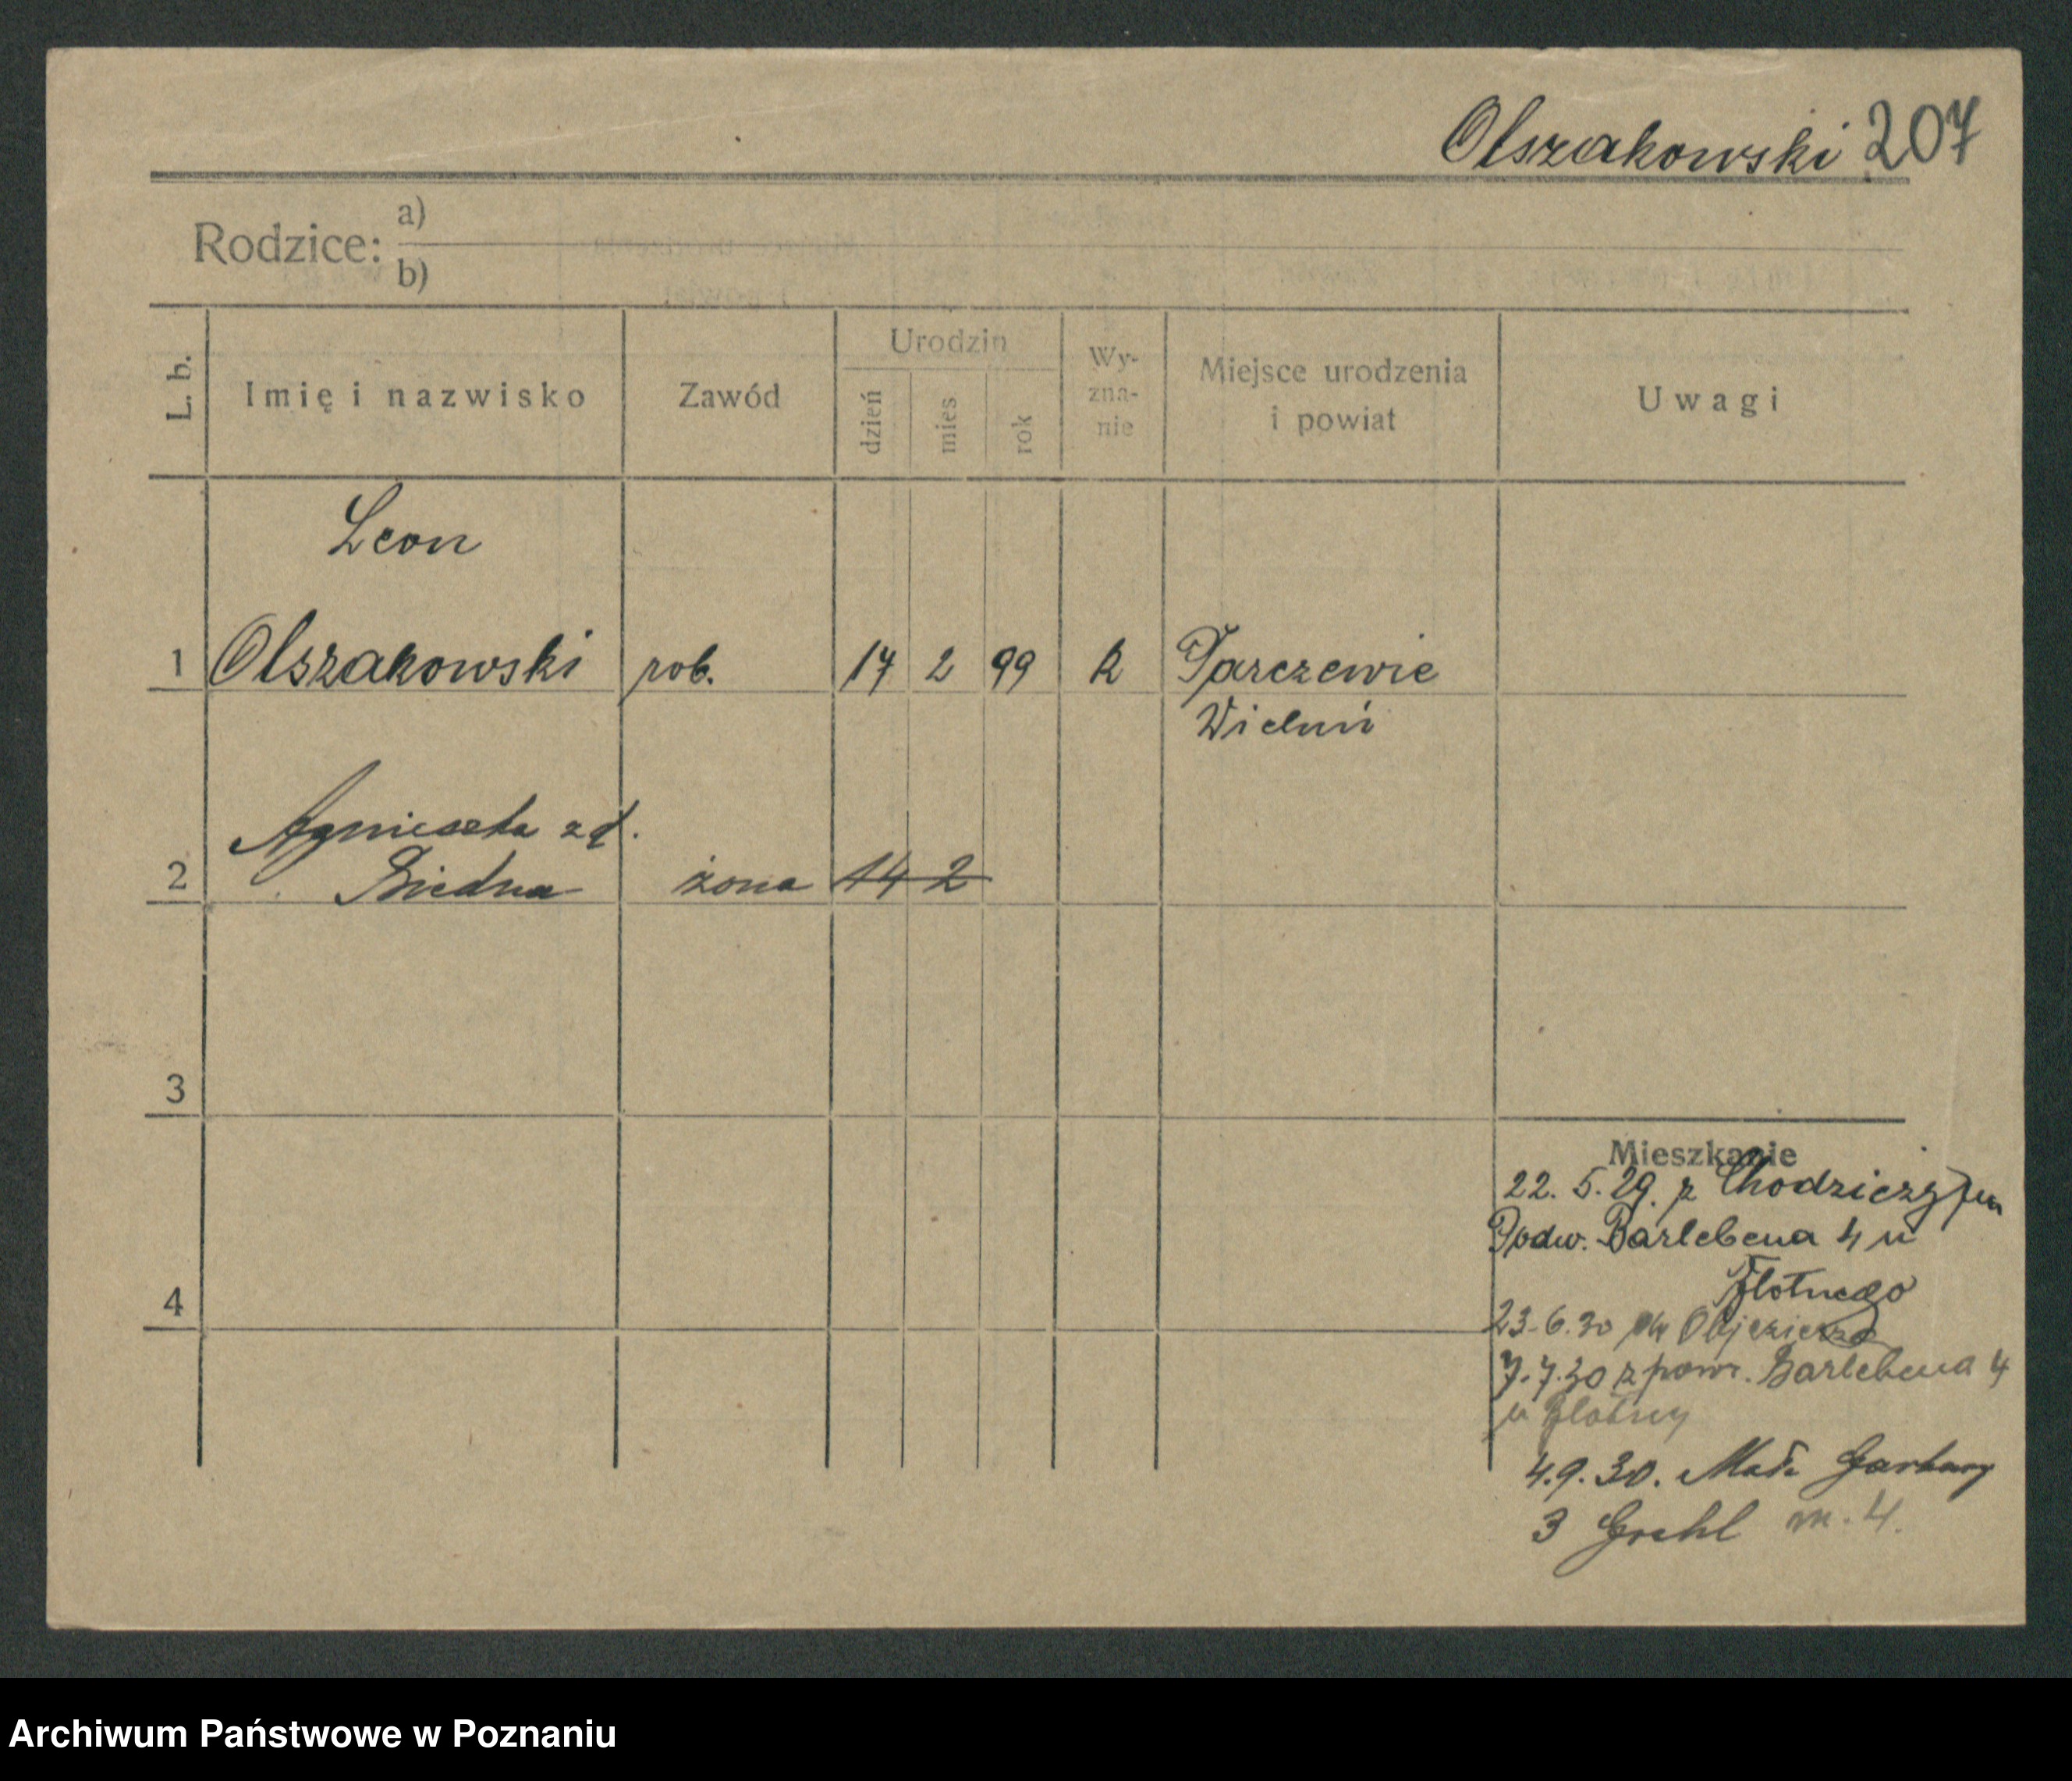 Olszakowski 207
Rodzice: a)
b)
L. b. Imię i nazwisko Zawód Urodzin dzień mies rok Wy-zna-nie Miejsce urodzenia i powiat Uwagi
Leon
1 Olszakowski rob. 17 2 99 k Parczewie
Wieluń
Agnieszka zd.
2 Biedna żona 14 2
3
Mieszkanie
22. 5. 29. z Chodzieży
Podw. Barlebena 4 u
Złotnego
4
23.6.30 Objezierze
7.7.30 z pow. Barlebena 4
u Złotny
4.9.30. Małe Garbary
3 Grehl m. 4.
Archiwum Państwowe w Poznaniu